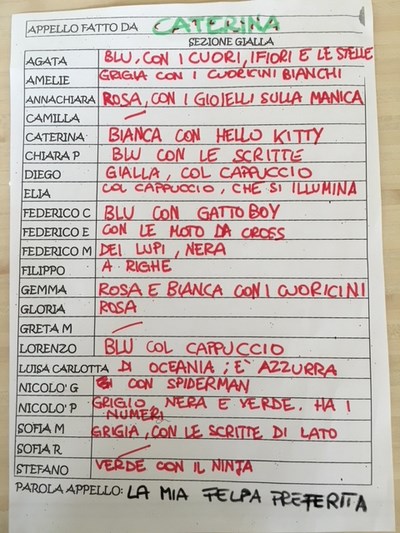 APPELLO FATTO DA CATERINA
SEZIONE GIALLA
AGATA BLU, CON I CUORI, I FIORI E LE STELLE
AMELIE GRIGIA CON I CUORICINI BIANCHI
ANNACHIARA ROSA, CON I GIOIELLI SULLA MANICA
CAMILLA
CATERINA BIANCA CON HELLO KITTY
CHIARA P BLU CON LE SCRITTE
DIEGO GIALLA, COL CAPPUCCIO
ELIA COL CAPPUCCIO, CHE SI ILLUMINA
FEDERICO C BLU CON GATTOBOY
FEDERICO E CON LE MOTO DA CROSS
FEDERICO M DEI LUPI, NERA
FILIPPO A RIGHE
GEMMA ROSA E BIANCA CON I CUORICINI
GLORIA ROSA
GRETA M
LORENZO BLU COL CAPPUCCIO
LUISA CARLOTTA DI OCEANIA; E' AZZURRA
NICOLO' G CON SPIDERMAN
NICOLO' P GRIGIO NERA E VERDE. HA I
NUMERI
SOFIA M GRIGIA, CON LE SCRITTE DI LATO
SOFIA R
STEFANO VERDE CON IL NINJA
PAROLA APPELLO: LA MIA FELPA PREFERITA